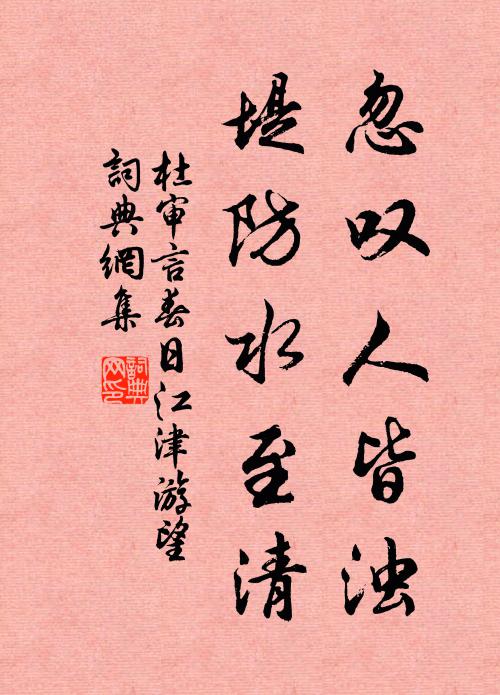 忽叹人皆浊
堤防水至清
杜审言春日江津游望
詞典網集
詞典网印